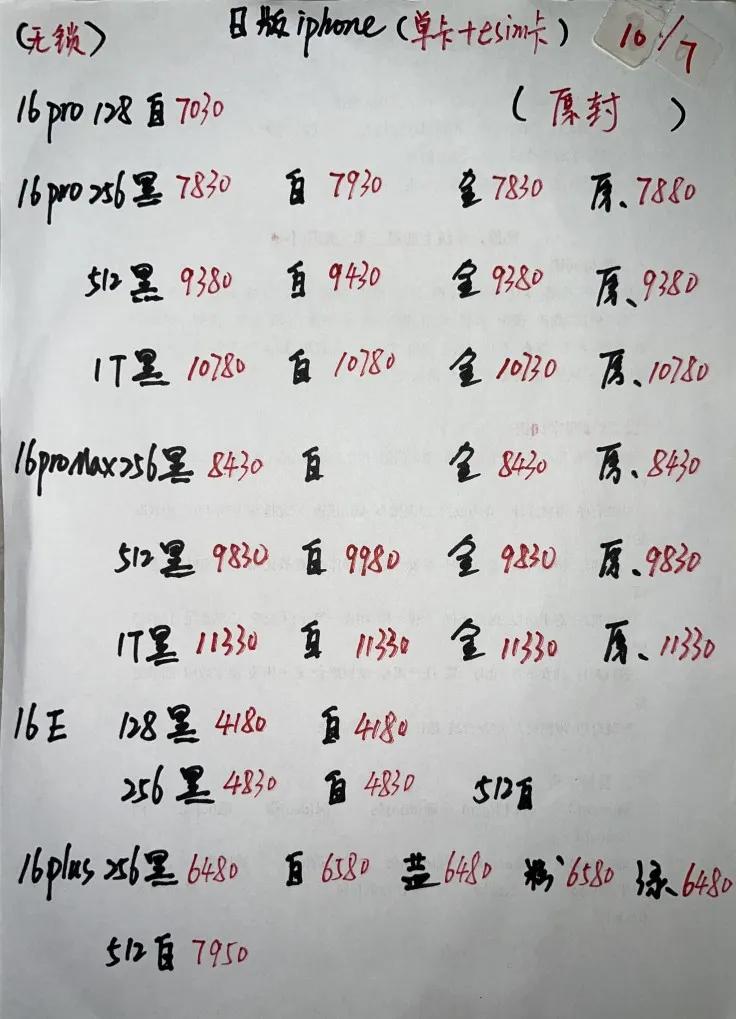 (无锁) 日版iphone (单卡+esim卡) 10/7
16pro 128 白 7030 (原封)
16pro 256 黑 7830 白 7930 金 7830 原、7880
512 黑 9380 白 9430 金 9380 原、9380
1T 黑 10780 白 10780 金 10730 原、10780
16proMax 256 黑 8430 白 金 8430 原、8430
512 黑 9830 白 9980 金 9830 原、9830
1T 黑 11330 白 11330 金 11330 原、11330
16E 128 黑 4180 白 4180
256 黑 4830 白 4830 512 白
16plus 256 黑 6480 白 6580 蓝 6480 粉 6580 绿、6480
512 白 7950